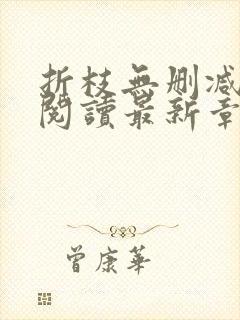 折枝無刪减
閱讀最新章
曾康華